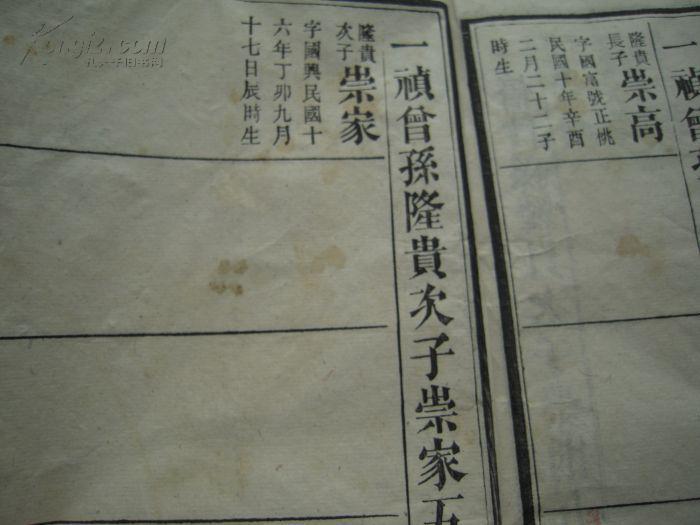 一禎曾
隆貴
長子
崇高
字國富號正桃
民國十年辛酉
二月二十二子
時生
一禎曾孫隆貴次子崇家五
隆貴
次子
崇家
字國興民國十
六年丁卯九月
十七日辰時生